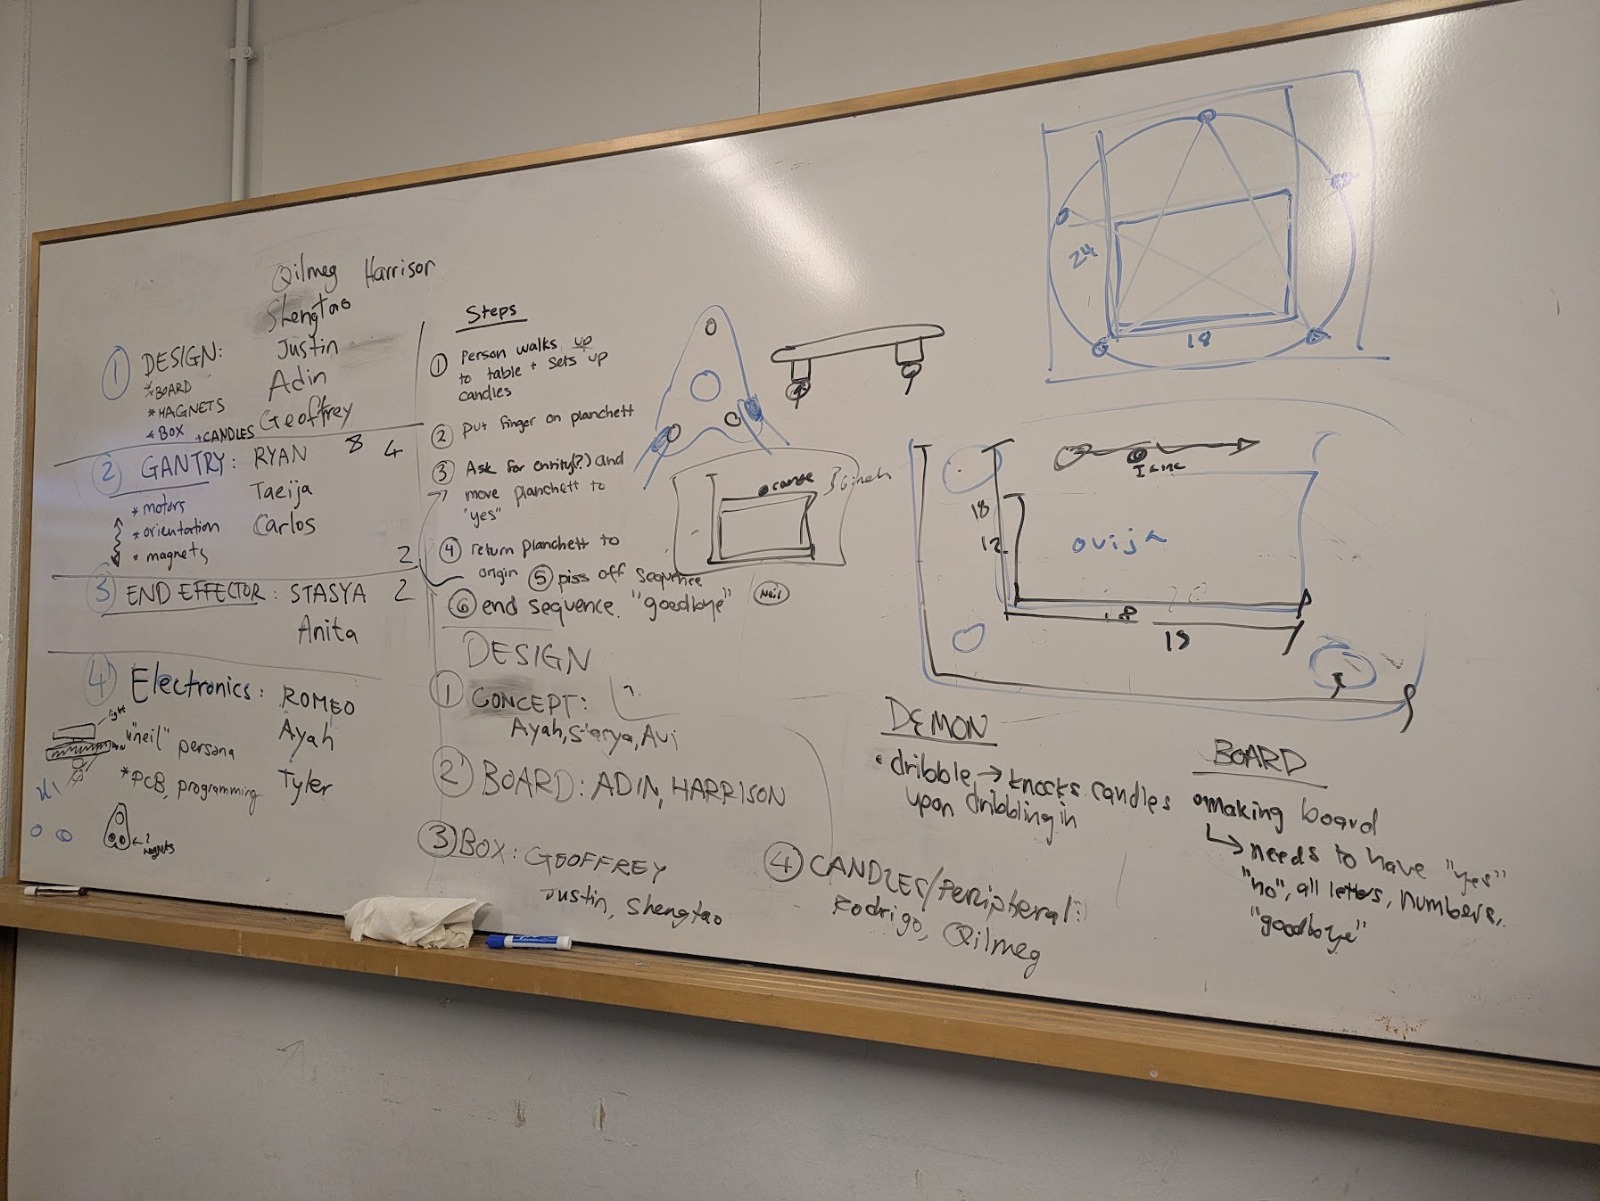 Qilmeg Harrison
Shengtao
Justin
Adin
Geoffrey
① DESIGN:
*BOARD
*MAGNETS
*BOX +CANDLES
8 4
② GANTRY: RYAN
Taeija
Carlos
* motors
* orientation
* magnets
2
③ END EFFECTOR: STASYA 2
Anita
④ Electronics: ROMEO
Ayah
Tyler
light
"neil" persona
*PCB, programming
2
magnets
Steps
① Person walks up
to table + sets up
candles
② Put finger on planchett
③ Ask for entity(?) and
move planchett to
"yes"
④ return planchett to
origin ⑤ piss off sequence
⑥ end sequence. "goodbye"
Neil
DESIGN
① CONCEPT: ?
Ayah, Stasya, Avi
② BOARD: ADIN, HARRISON
③ BOX: GEOFFREY
Justin, Shengtao
④ CANDLES/Peripheral:
Rodrigo, Qilmeg
6 inch
24
18
18
12
ouija
18
15
DEMON
• dribble → knocks candles
upon dribbling in
BOARD
making board
↳ needs to have "yes"
"no", all letters, numbers,
"goodbye"